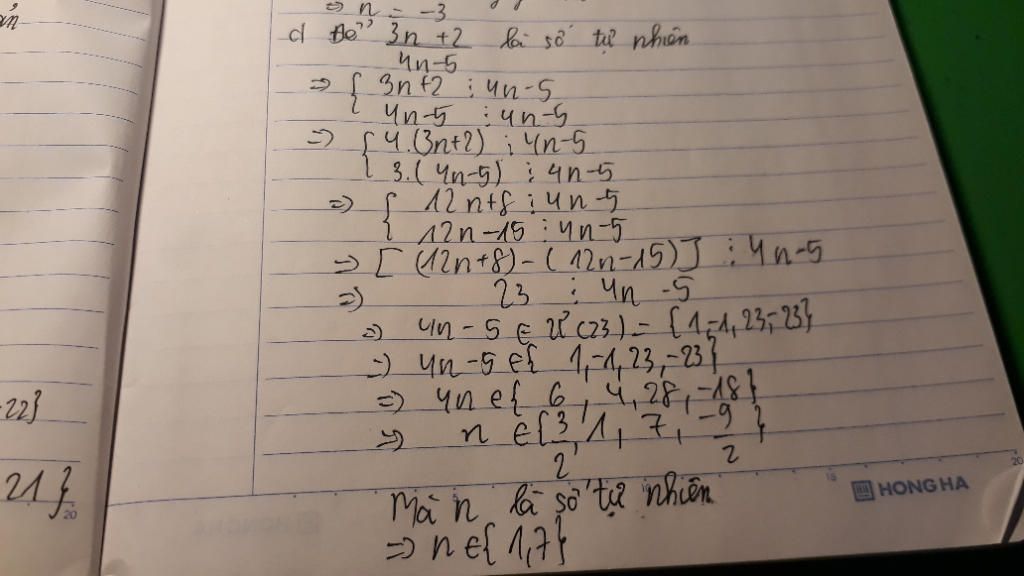 ản
⇒ n = -3
d Để 3n+2 / 4n-5 là số tự nhiên
⇒ { 3n+2 ⋮ 4n-5
4n-5 ⋮ 4n-5
⇒ { 4.(3n+2) ⋮ 4n-5
3.(4n-5) ⋮ 4n-5
⇒ { 12n+8 ⋮ 4n-5
12n-15 ⋮ 4n-5
⇒ [(12n+8)-(12n-15)] ⋮ 4n-5
⇒ 23 ⋮ 4n-5
⇒ 4n-5 ∈ Ư(23) = {1,-1,23,-23}
⇒ 4n-5 ∈ { 1,-1,23,-23}
⇒ 4n ∈ { 6, 4, 28, -18}
⇒ n ∈ {3/2, 1, 7, -9/2}
Mà n là số tự nhiên
⇒ n ∈ {1,7}
-22}
21}
20
15
20
HONG HA